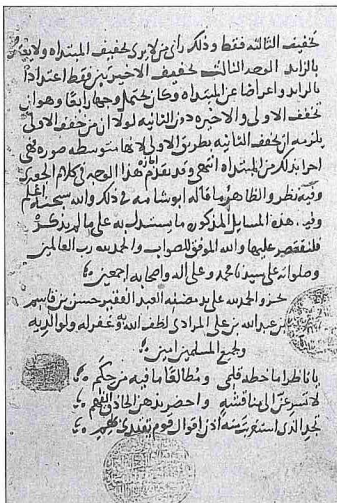 تخفيف الثالثة فقط وذلك رأي من لا يرى تخفيف المبتدأة ولا يعتد
بالزايد الوجه الثالث تخفيف الاخيرتين فقط اعتدادا
بالزايد واعراضا عن المبتدأة وكان يحتمل وجها رابعا وهو ان
تخفف الاولى والاخيرة دون الثانية لولا ان من خفف الاولى
يلزمه ان يخفف الثانية بطريق الاولى لانها متوسطة صورة فهي
احرى بذلك من المبتدأة انتهى وقد تقدم هذا الوجه في كلام الجعبري
وفيه نظر والظاهر ما قاله ابو شامة في ذلك والله سبحنه اعلم
وفي هذه المسايل المذكورة ما يستدل به على ما لم يذكر
فلنقتصر عليها والله الموفق للصواب والحمد لله رب العالمين
وصلواته على سيدنا محمد وعلى اله واصحابه اجمعين
نجز والحمد لله على يد مصنفه العبد الفقير حسن بن قاسم
بن عبد الله بن علي المرادي لطف الله به وغفر له ولوالديه
ولجميع المسلمين امين
يا ناظرا ما خطه قلمي ومطالعا ما فيه من حكم
لا تسرعن الى مناقشة واحضر بذهن الحاذق الفهم
تجد الذي استغربته اذن اقوال قوم يقتدى بهم